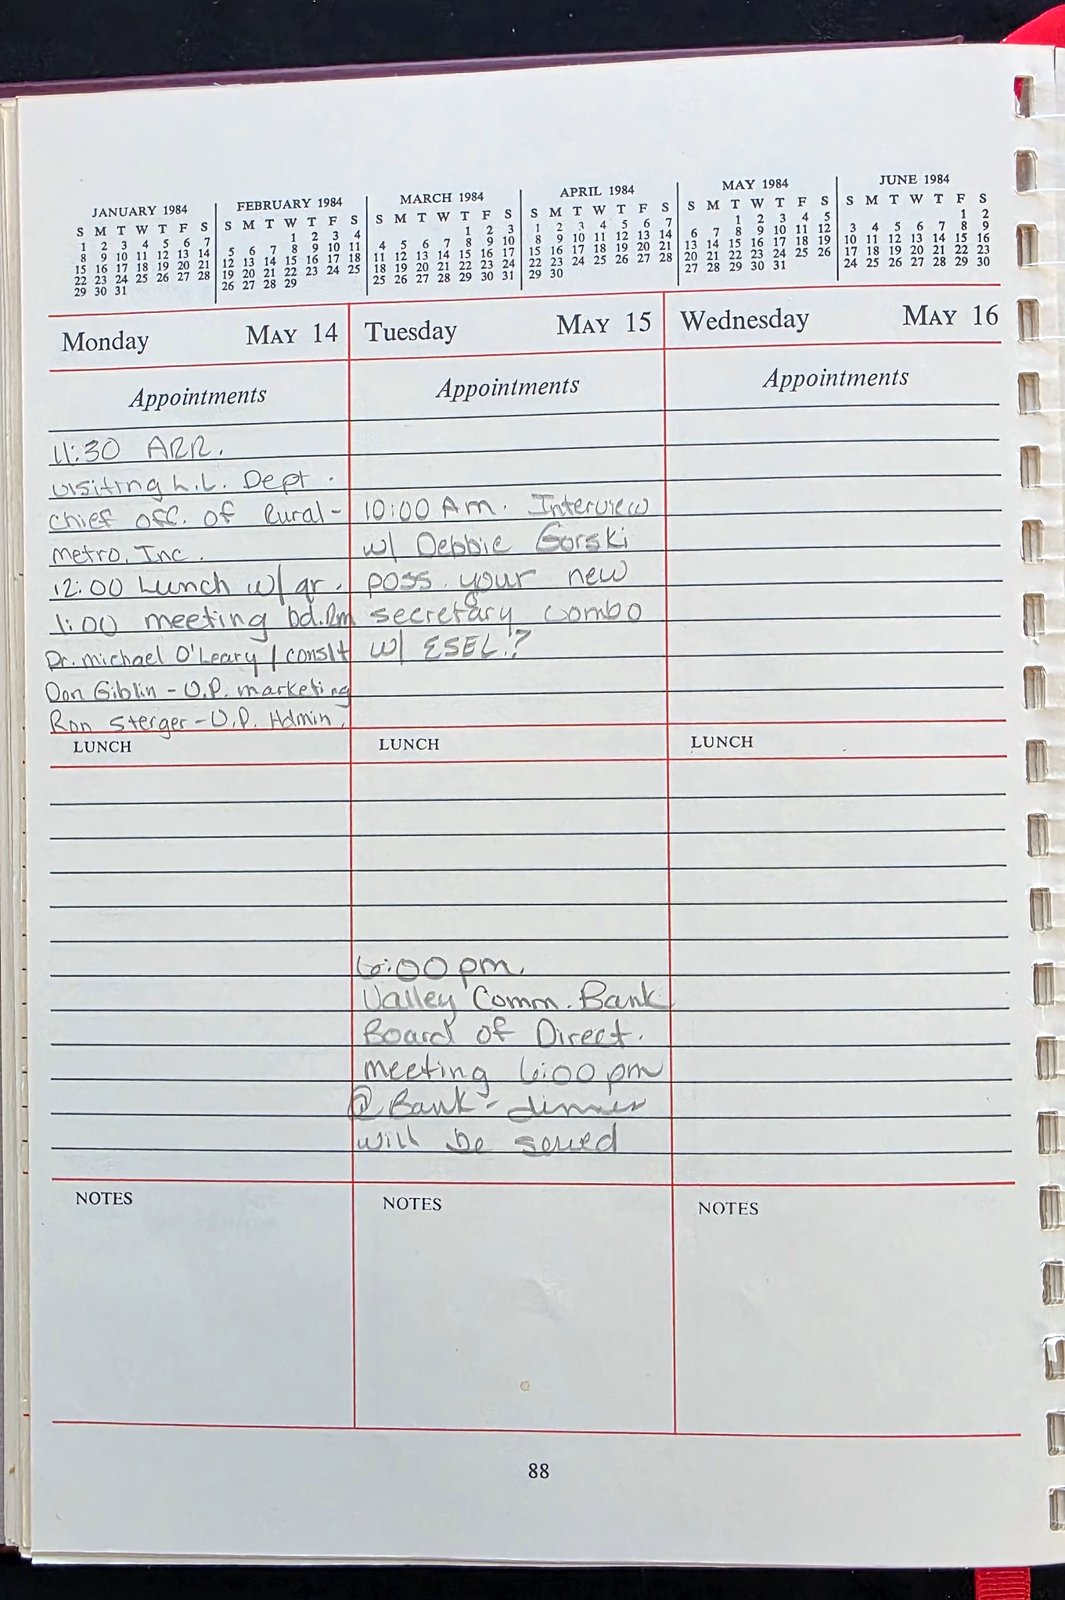 JANUARY 1984
S M T W T F S
1 2 3 4 5 6 7
8 9 10 11 12 13 14
15 16 17 18 19 20 21
22 23 24 25 26 27 28
29 30 31
FEBRUARY 1984
S M T W T F S
1 2 3 4
5 6 7 8 9 10 11
12 13 14 15 16 17 18
19 20 21 22 23 24 25
26 27 28 29
MARCH 1984
S M T W T F S
1 2 3
4 5 6 7 8 9 10
11 12 13 14 15 16 17
18 19 20 21 22 23 24
25 26 27 28 29 30 31
APRIL 1984
S M T W T F S
1 2 3 4 5 6 7
8 9 10 11 12 13 14
15 16 17 18 19 20 21
22 23 24 25 26 27 28
29 30
MAY 1984
S M T W T F S
1 2 3 4 5
6 7 8 9 10 11 12
13 14 15 16 17 18 19
20 21 22 23 24 25 26
27 28 29 30 31
JUNE 1984
S M T W T F S
1 2
3 4 5 6 7 8 9
10 11 12 13 14 15 16
17 18 19 20 21 22 23
24 25 26 27 28 29 30
Monday MAY 14
Appointments
11:30 ARR.
visiting L.L. Dept.
chief off. of Rural-
Metro, Inc.
12:00 Lunch w/ gr.
1:00 meeting bd. Rm
Dr. Michael O'Leary / conslt
Don Giblin - V.P. marketing
Ron Sterger - V.P. Admin.
LUNCH
NOTES
Tuesday MAY 15
Appointments
10:00 Am. Interview
w/ Debbie Gorski
poss. your new
secretary combo
w/ ESEL.?
LUNCH
6:00 pm.
Valley Comm. Bank
Board of Direct.
meeting 6:00 pm
@ Bank - dinner
will be served
NOTES
Wednesday MAY 16
Appointments
LUNCH
NOTES
88